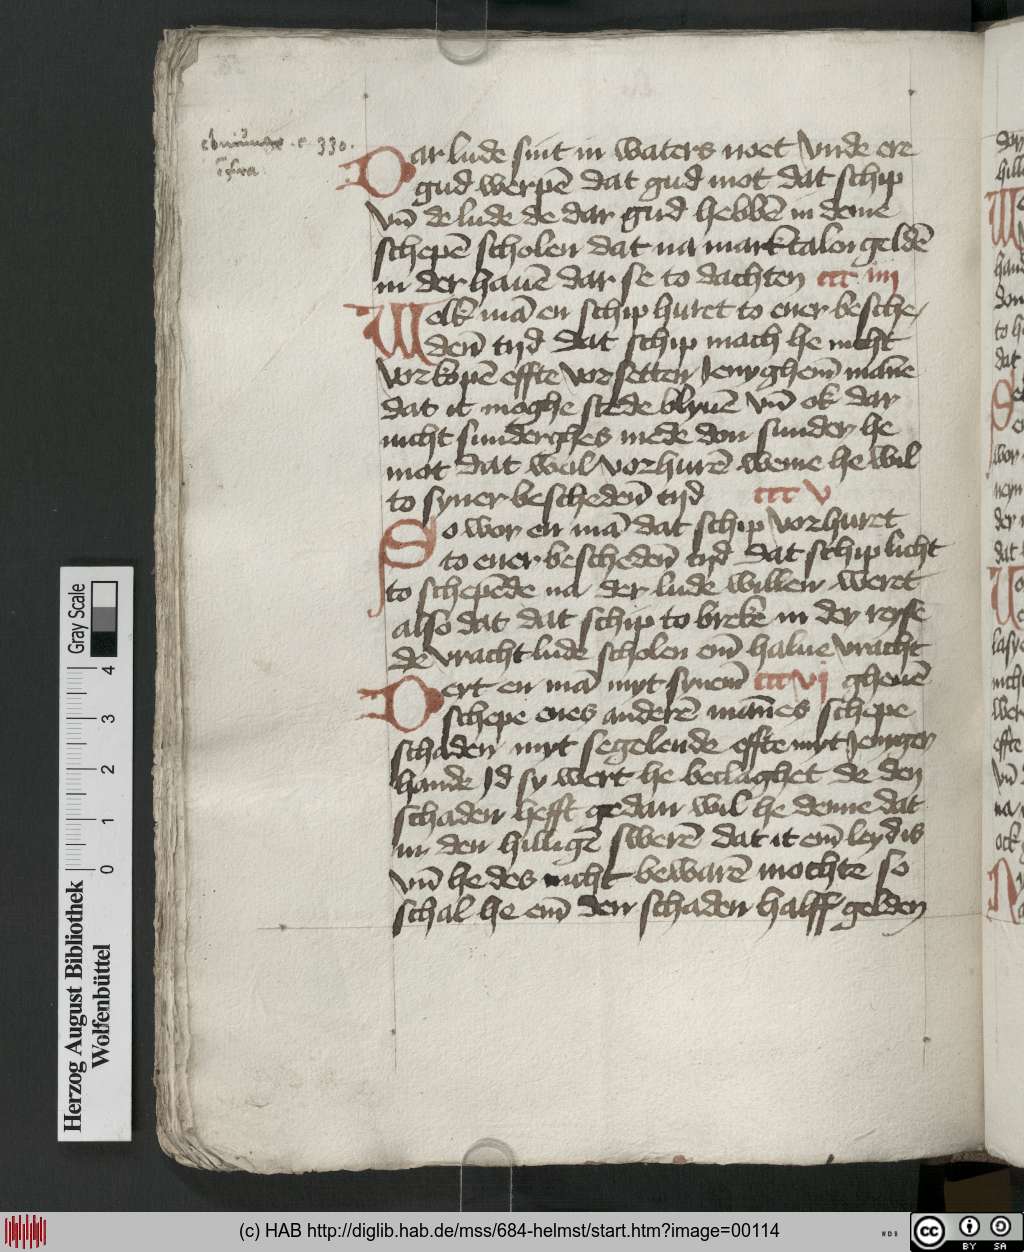 c. 330.
jnfra
Dar lude sint in waters noet Vnde ere
gud werpē dat gud mot dat schip
vn̄ de lude de dar gud hebbē in deme
schepē scholen dat na marktalen geldē
in der hauē dar se to dachten ccc iiii
Welk mā en schip huret to ener besche/
den̄ tijd dat schip mach he nicht
vorkopē effte vorsetten Jenyghem̄ mānē
dat it moghe stede blyuē vn̄ ok dar
nicht sunderghes mede don sunder he
mot dat weil vorhurē weme he wil
to syner bescheden̄ tijd ccc v
So wor en mā dat schip vorhuret
to ener bescheden̄ tijd dat schip licht
to schepēde na der lude willen weret
also dat dat schip to brekē in der reyse
de vracht lude scholen em̄ halue vracht
gheuē
Deit en mā myt synem̄ ccc vj
schepe enes anderē mānes schepe
schaden myt segelende effte myt Jenigen
hande Jd sy wert he beclaghet de den
schaden hefft gedan wil he deme dat
in den hilligē swerē dat it em̄ leyd is
vn̄ he des nicht bewarē mochte so
schal he em̄ den schaden halff gelden
Herzog August Bibliothek
Wolfenbüttel
0 1 2 3 4
Gray Scale
(c) HAB http://diglib.hab.de/mss/684-helmst/start.htm?image=00114
WDB
cc BY SA